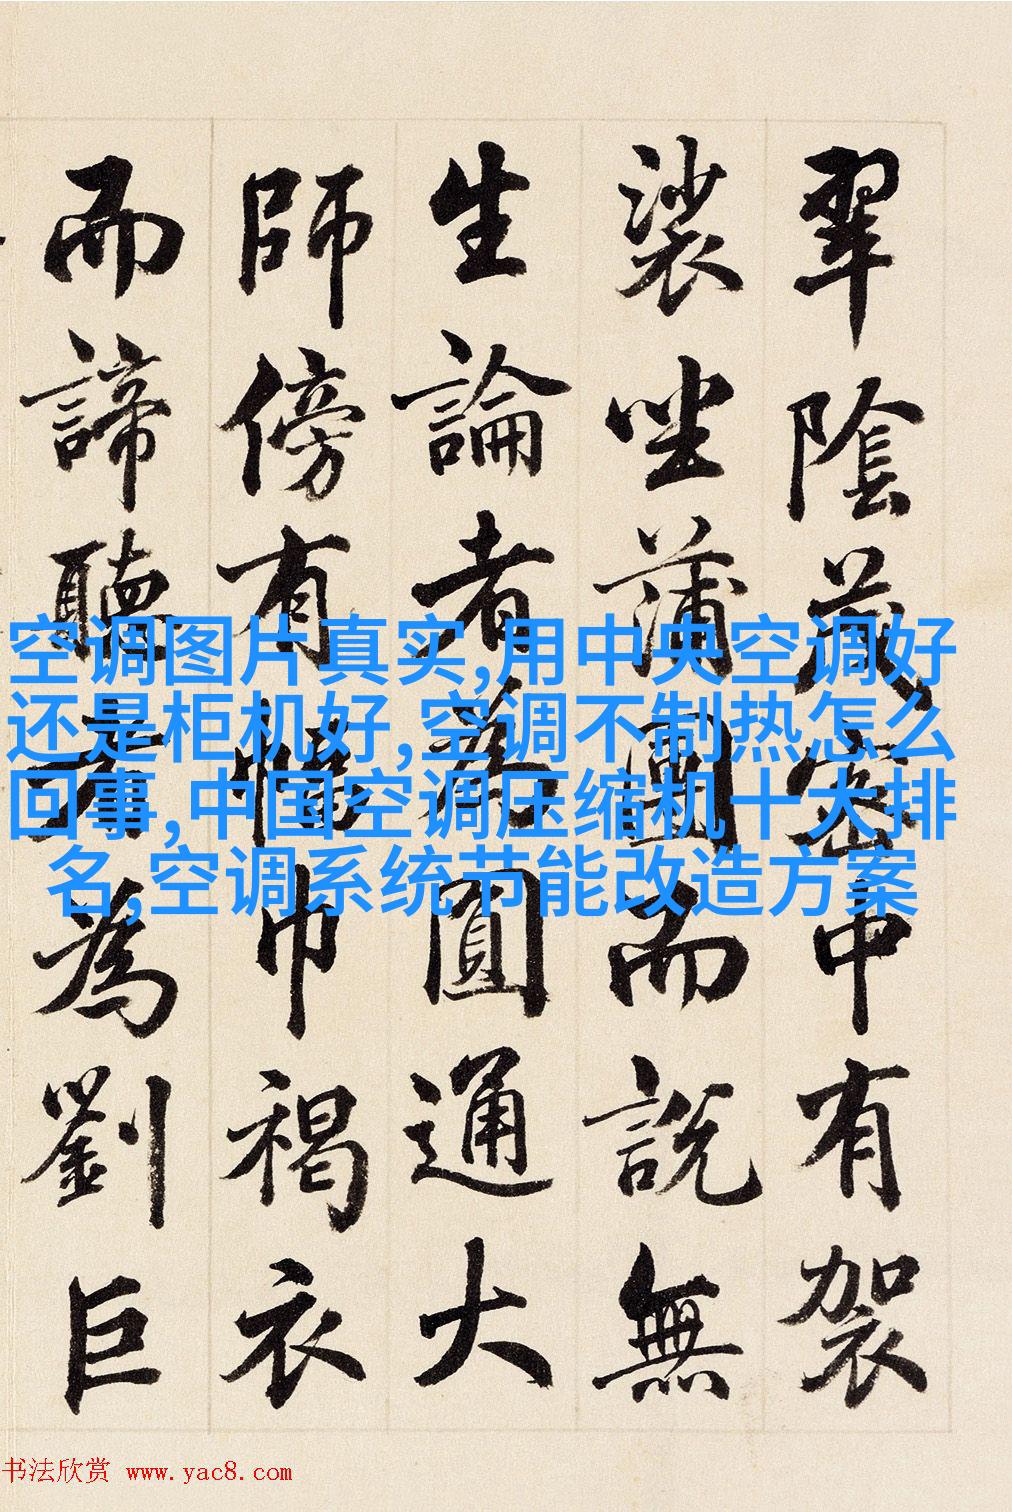 翠陰茂密中有袈
裟坐蒲團而說無
生論者為圓通大
師傍有幅巾褐衣
而諦聽者為劉巨
空调图片真实,用中央空调好
还是柜机好,空调不制热怎么
回事,中国空调压缩机十大排
名,空调系统节能改造方案
书法欣赏 www.yac8.com